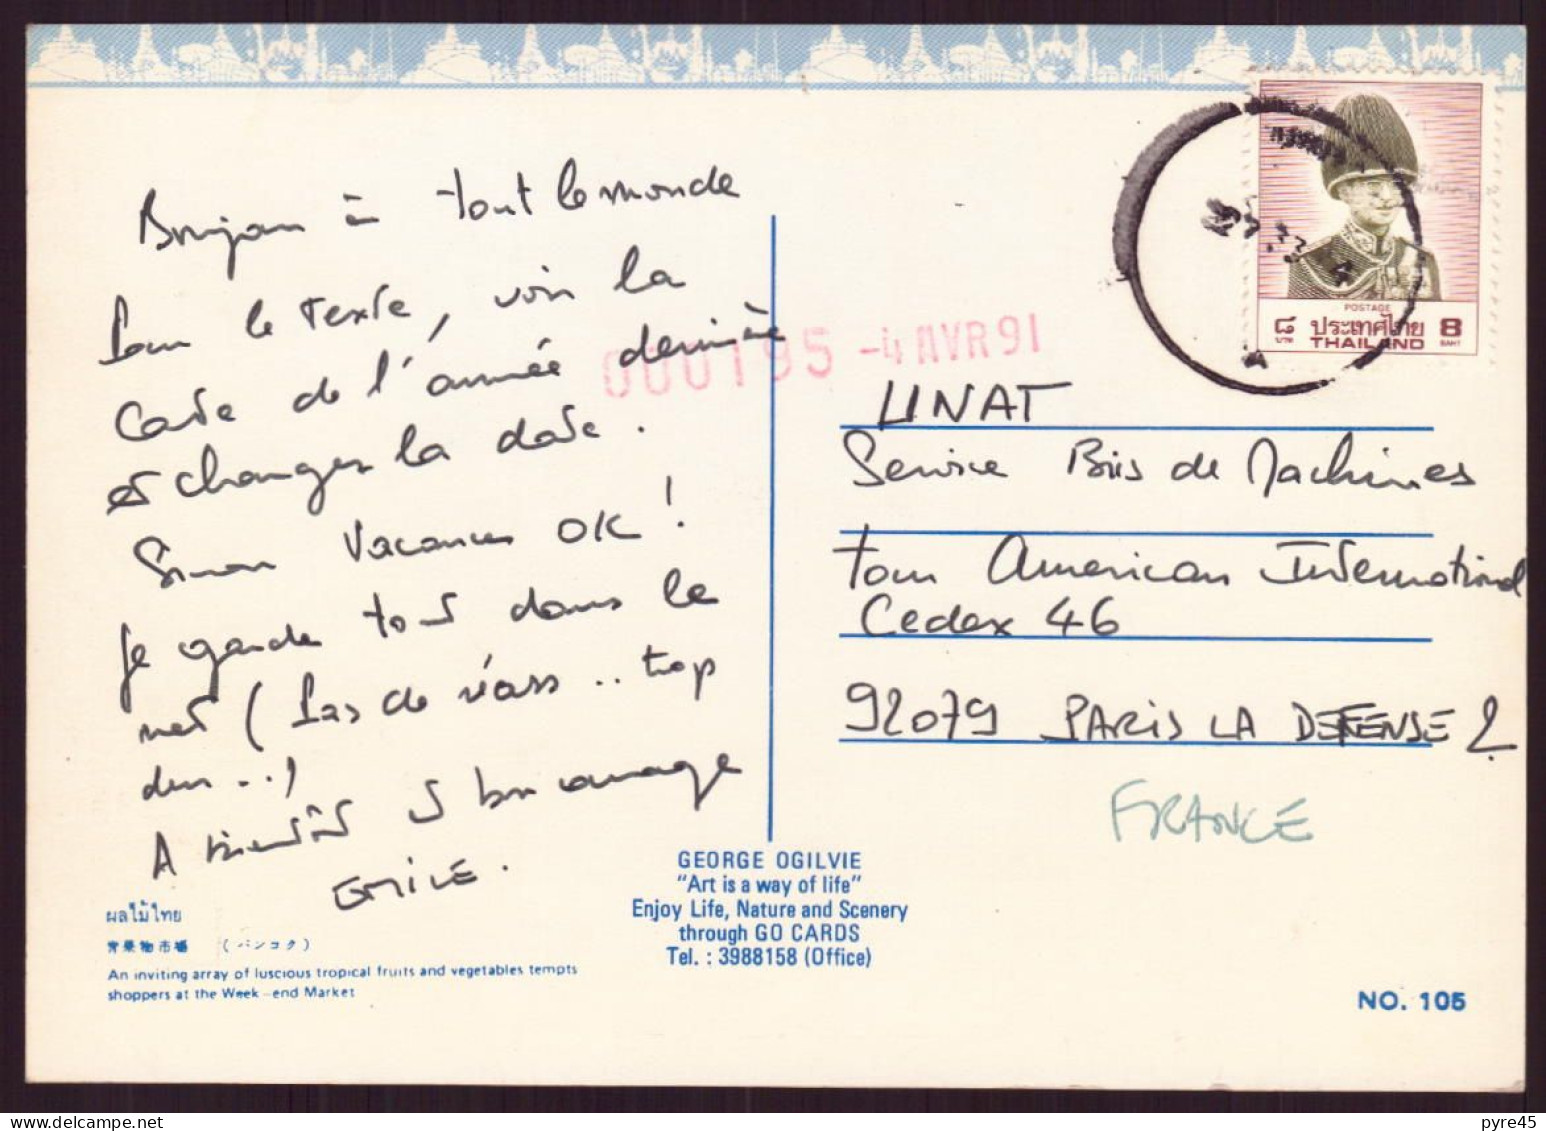 Bonjour à tout le monde
Pour le texte, voir la
Carte de l'année dernière
et changer la date.
Sinon Vacances OK!
Je garde tout dans le
net (Pas de .. trop
dur...)
A bientôt et bon courage
EMILE.
000195 -4 AVR 91
๘ ประเทศไทย 8
บาท POSTAGE BAHT
THAILAND
UNAT
Service Bris de Machines
tour American International
Cedex 46
92079 PARIS LA DEFENSE 2
FRANCE
GEORGE OGILVIE
"Art is a way of life"
Enjoy Life, Nature and Scenery
through GO CARDS
Tel. : 3988158 (Office)
ผลไม้ไทย
青果物市場 (バンコク)
An inviting array of luscious tropical fruits and vegetables tempts
shoppers at the Week-end Market
NO. 105
pyre45